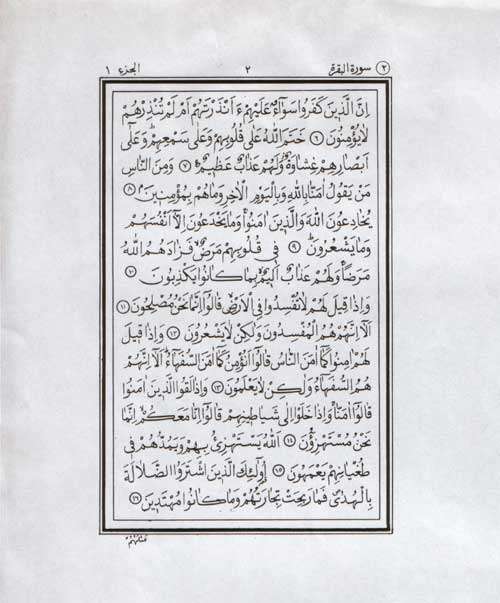 ٢ سورة البقرة ٢ الجزء ١
اِنَّ الَّذٖينَ كَفَرُوا سَوَٓاءٌ عَلَيْهِمْ ءَاَنْذَرْتَهُمْ اَمْ لَمْ تُنْذِرْهُمْ
لَا يُؤْمِنُونَ ٦ خَتَمَ اللّٰهُ عَلٰى قُلُوبِهِمْ وَعَلٰى سَمْعِهِمْ وَعَلٰٓى
اَبْصَارِهِمْ غِشَاوَةٌ وَلَهُمْ عَذَابٌ عَظٖيمٌ ٧ وَمِنَ النَّاسِ
مَنْ يَقُولُ اٰمَنَّا بِاللّٰهِ وَبِالْيَوْمِ الْاٰخِرِ وَمَا هُمْ بِمُؤْمِنٖينَ ٨
يُخَادِعُونَ اللّٰهَ وَالَّذٖينَ اٰمَنُوا وَمَا يَخْدَعُونَ اِلَّٓا اَنْفُسَهُمْ
وَمَا يَشْعُرُونَ ٩ فٖي قُلُوبِهِمْ مَرَضٌ فَزَادَهُمُ اللّٰهُ
مَرَضًا وَلَهُمْ عَذَابٌ اَلٖيمٌ بِمَا كَانُوا يَكْذِبُونَ ١٠
وَاِذَا قٖيلَ لَهُمْ لَا تُفْسِدُوا فِي الْاَرْضِ قَالُٓوا اِنَّمَا نَحْنُ مُصْلِحُونَ ١١
اَلَٓا اِنَّهُمْ هُمُ الْمُفْسِدُونَ وَلٰكِنْ لَا يَشْعُرُونَ ١٢ وَاِذَا قٖيلَ
لَهُمْ اٰمِنُوا كَمَٓا اٰمَنَ النَّاسُ قَالُٓوا اَنُؤْمِنُ كَمَٓا اٰمَنَ السُّفَهَٓاءُ اَلَٓا اِنَّهُمْ
هُمُ السُّفَهَٓاءُ وَلٰكِنْ لَا يَعْلَمُونَ ١٣ وَاِذَا لَقُوا الَّذٖينَ اٰمَنُوا
قَالُٓوا اٰمَنَّا وَاِذَا خَلَوْا اِلٰى شَيَاطٖينِهِمْ قَالُٓوا اِنَّا مَعَكُمْ اِنَّمَا
نَحْنُ مُسْتَهْزِؤُنَ ١٤ اَللّٰهُ يَسْتَهْزِئُ بِهِمْ وَيَمُدُّهُمْ فٖي
طُغْيَانِهِمْ يَعْمَهُونَ ١٥ اُو۬لٰٓئِكَ الَّذٖينَ اشْتَرَوُا الضَّلَالَةَ
بِالْهُدٰى فَمَا رَبِحَتْ تِجَارَتُهُمْ وَمَا كَانُوا مُهْتَدٖينَ ١٦
مَثَلُهُمْ